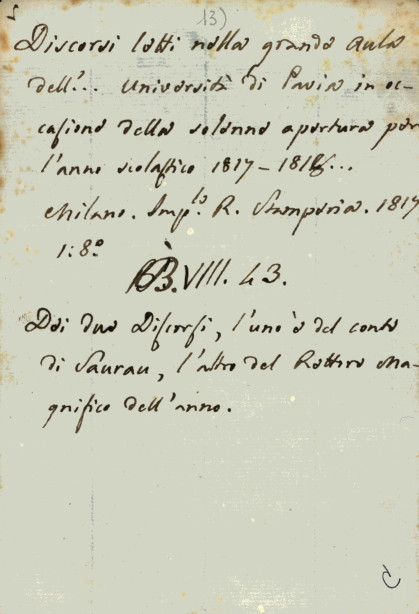 13)
Discorsi letti nella grande Aula
dell'... Università di Pavia in oc-
casione della solenne apertura per
l'anno scolastico 1817-1818...
Milano. Imp.le R. Stamperia. 1817
1: 8.°
B. VIII. 43.
Dei due Discorsi, l'uno è del conte
di Saurau, l'altro del Rettore Ma-
gnifico dell'anno.